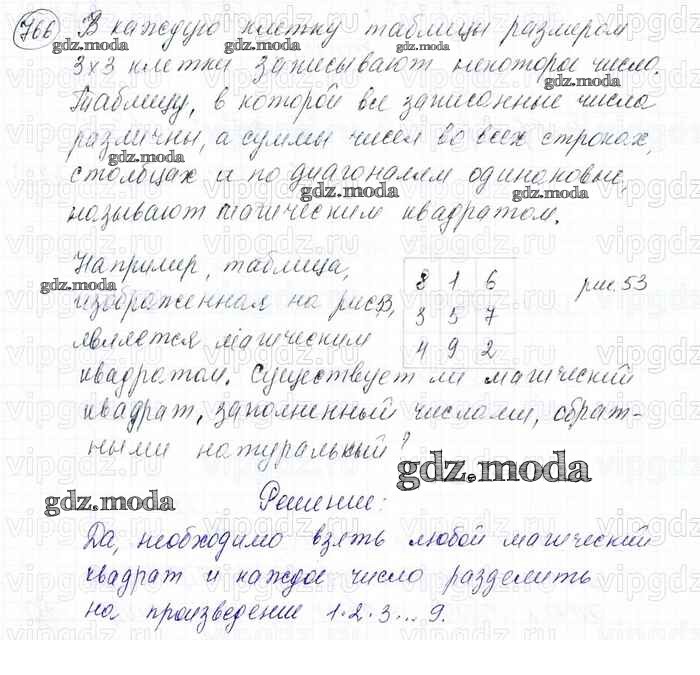 766 В каждую клетку таблицы размером
3х3 клетки записывают некоторое число.
Таблицу, в которой все записанные числа
различны, а суммы чисел во всех строках,
столбцах и по диагоналям одинаковые,
называют магическим квадратом.
Например, таблица,
изображенная на рис 53,
является магическим
квадратом. Существует ли магический
квадрат, заполненный числами, обрат-
ными натуральный?
8 1 6
3 5 7
4 9 2
рис. 53
Решение:
Да, необходимо взять любой магический
квадрат и каждое число разделить
на произведение 1·2·3...9.
gdz.moda
vipgdz.ru